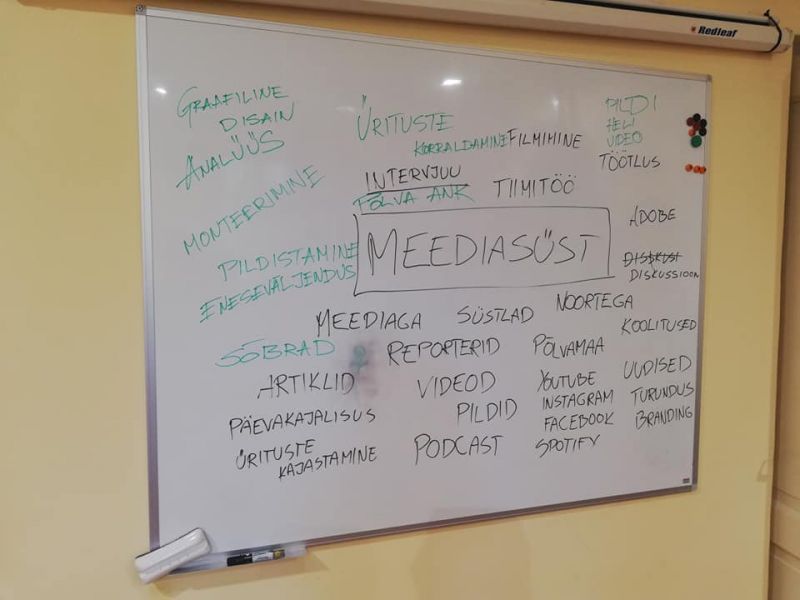 Redleaf
GRAAFILINE
DISAIN
ANALÜÜS
ÜRITUSTE
KORRALDAMINE
FILMIMINE
PILDI
HELI
VIDEO
TÖÖTLUS
MONTEERIMINE
INTERVJUU
PÕLVA ANK
TIIMITÖÖ
PILDISTAMINE
ENESEVÄLJENDUS
MEEDIASÜST
ADOBE
DISKUSI
DISKUSSIOON
MEEDIAGA
SÜSTLAD
NOORTEGA
KOOLITUSED
SÕBRAD
REPORTERID
PÕLVAMAA
ARTIKLID
VIDEOD
YOUTUBE
UUDISED
PÄEVAKAJALISUS
PILDID
INSTAGRAM
TURUNDUS
FACEBOOK
BRANDING
ÜRITUSTE
KAJASTAMINE
PODCAST
SPOTIFY